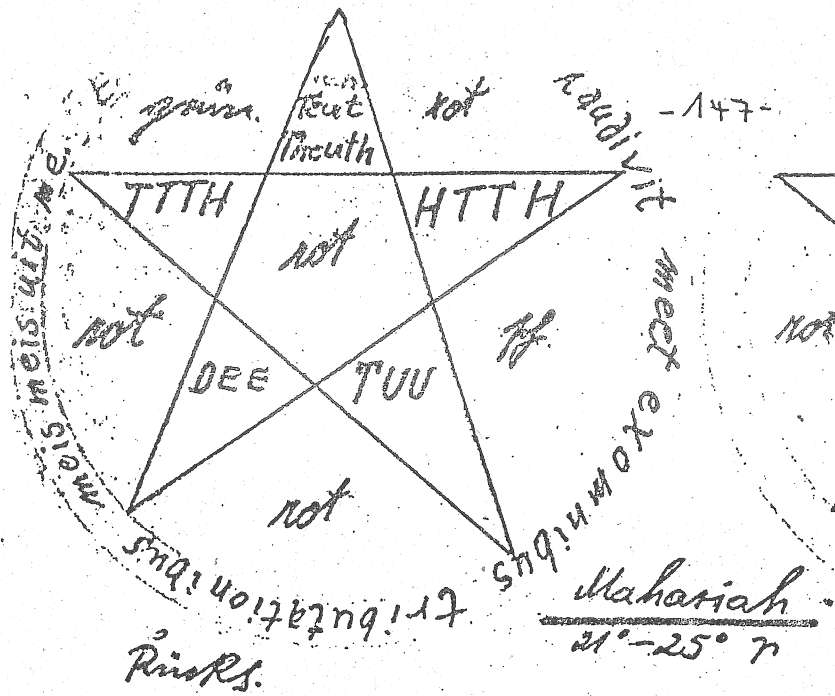 -147-
grün.
rot
Teut
TTTH
HTTH
rot
rot
rot
DEE
TUU
rot
rot
xaudivit me et exomnibus tributationibus meis meis uit me. E
Mahasiah
21°-25° ♈
Rücks.